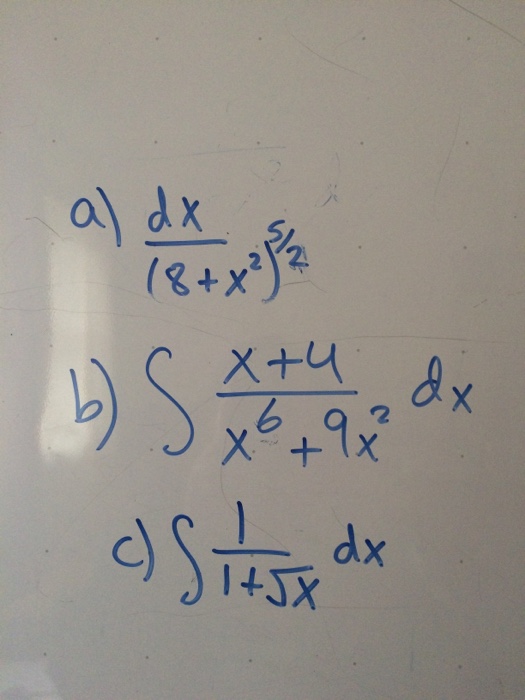 a) dx / (8+x²)^5/2
b) ∫ x+4 / x⁶+9x² dx
c) ∫ 1 / 1+√x dx